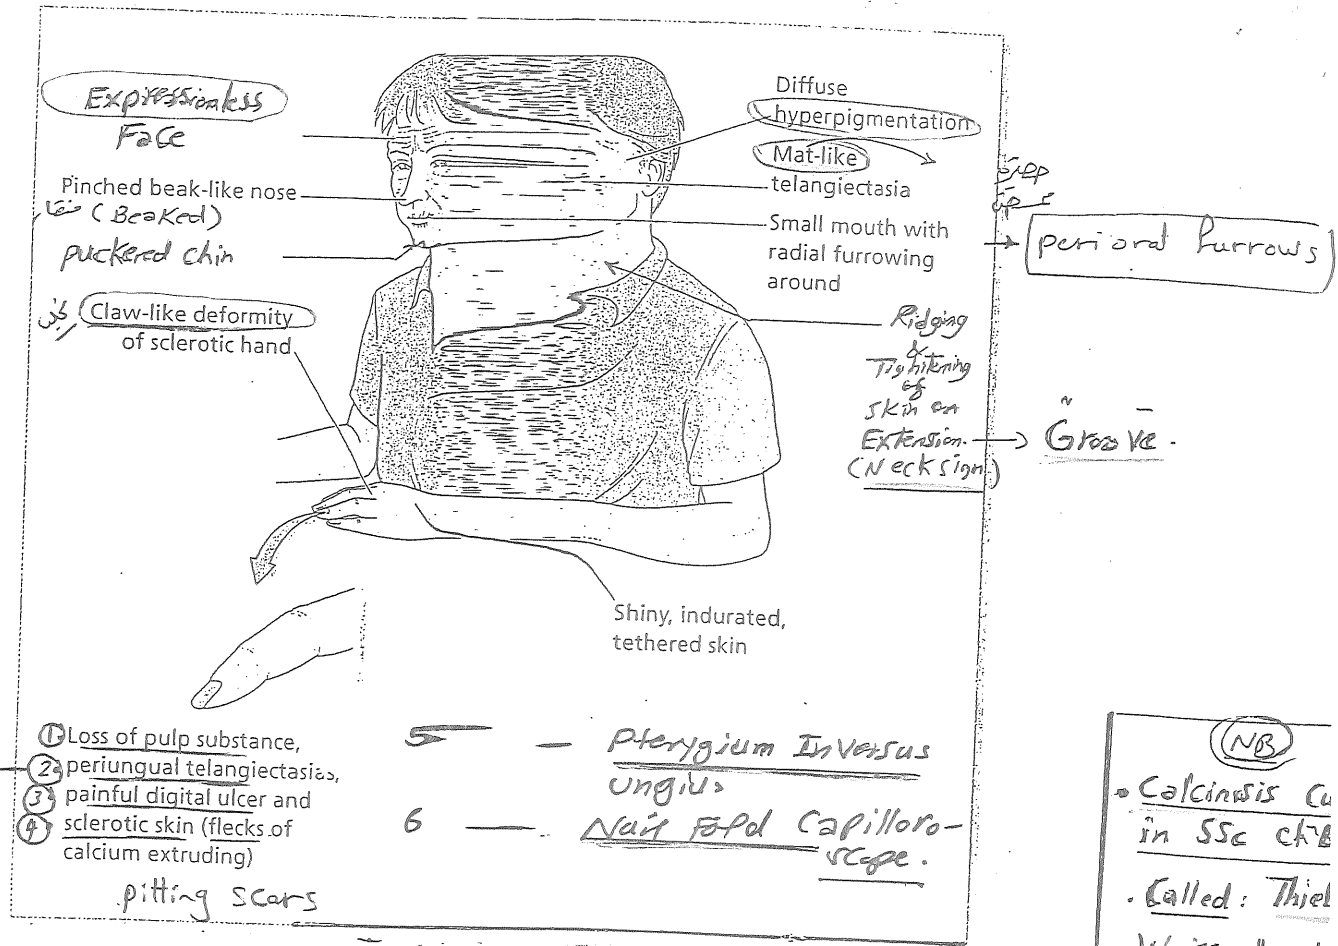 Expressionless
Face
Pinched beak-like nose
(Beaked)
puckered chin
Claw-like deformity
of sclerotic hand
Diffuse
hyperpigmentation
Mat-like
telangiectasia
Small mouth with
radial furrowing
around
perioral furrows
Ridging
&
Tightening
of
skin on
Extension.
(Neck sign)
Groove.
Shiny, indurated,
tethered skin
1 Loss of pulp substance,
2 periungual telangiectasias,
3 painful digital ulcer and
4 sclerotic skin (flecks of
calcium extruding)
pitting scars
5 — Pterygium Inversus
ungius
6 — Nail Fold Capilloro-
scope.
NB
• Calcinosis Cu
in SSc
. Called: Thie